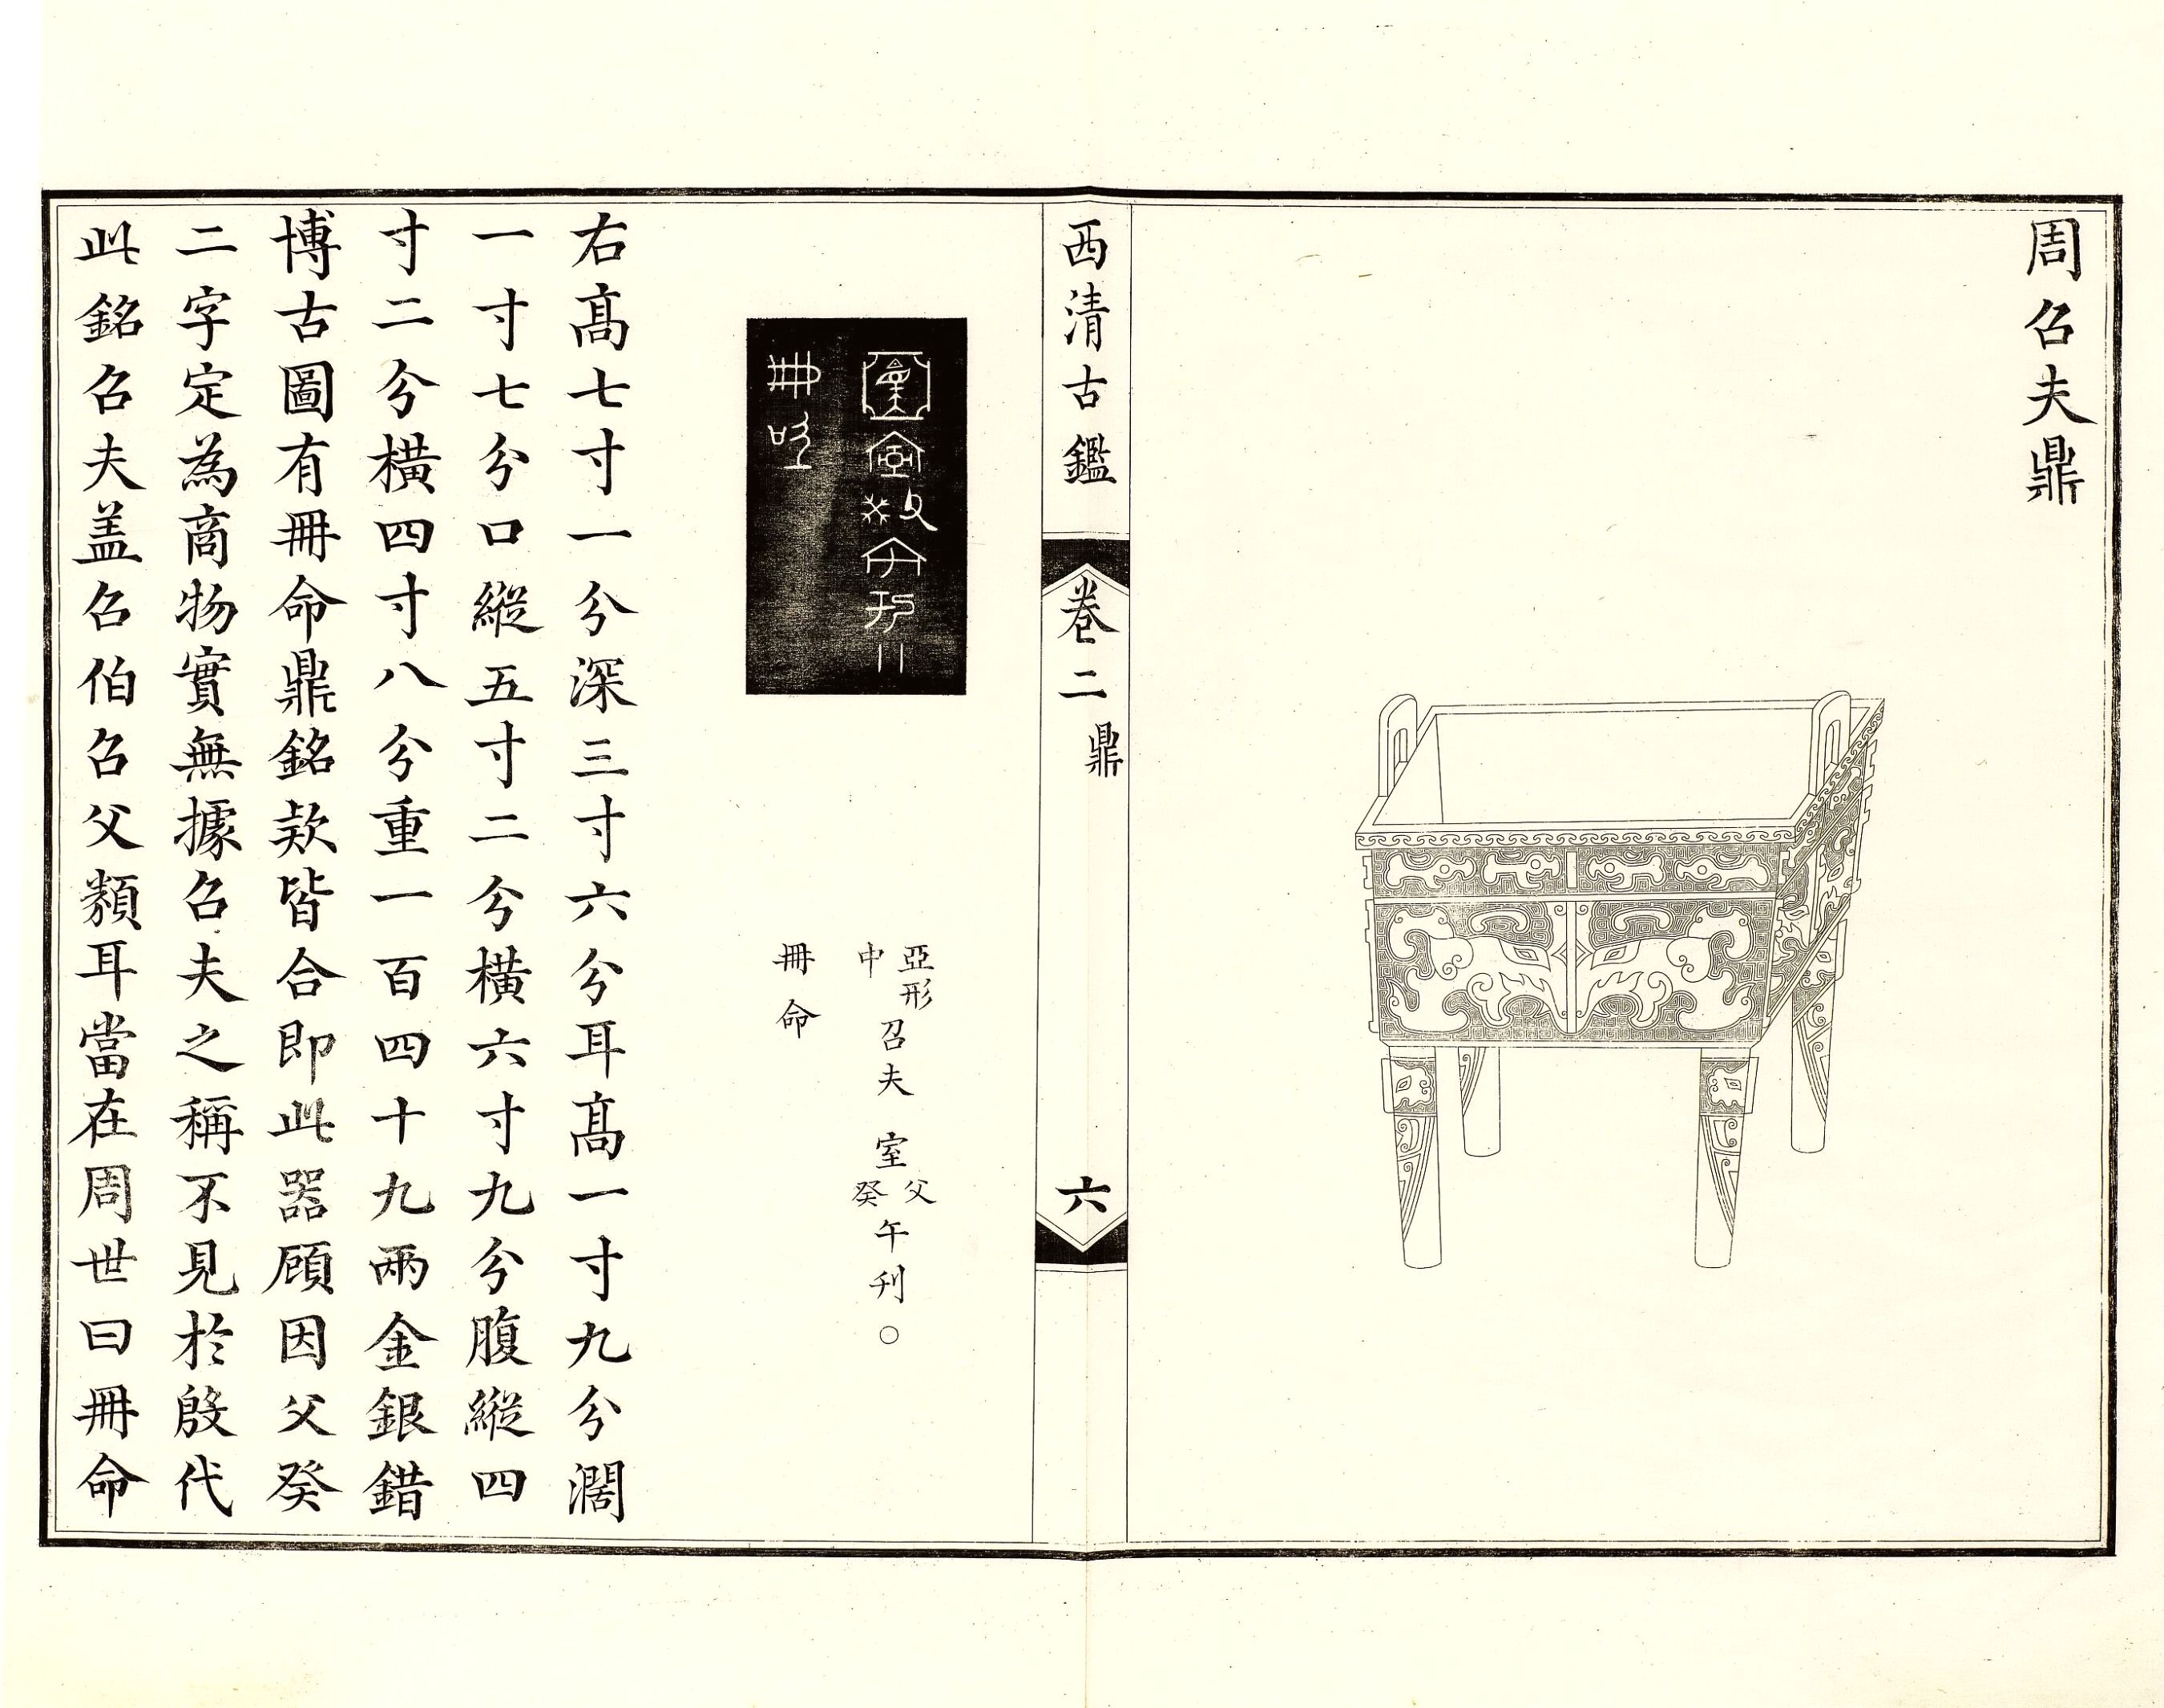 周召夫鼎
西清古鑑
卷二
鼎
六
亞形
中
召夫
室
父
癸
午刊○
冊命
右髙七寸一分深三寸六分耳髙一寸九分濶
一寸七分口縱五寸二分橫六寸九分腹縱四
寸二分橫四寸八分重一百四十九兩金銀錯
博古圖有冊命鼎銘款皆合即此器顧因父癸
二字定為商物實無據召夫之稱不見於殷代
此銘召夫盖召伯召父類耳當在周世曰冊命